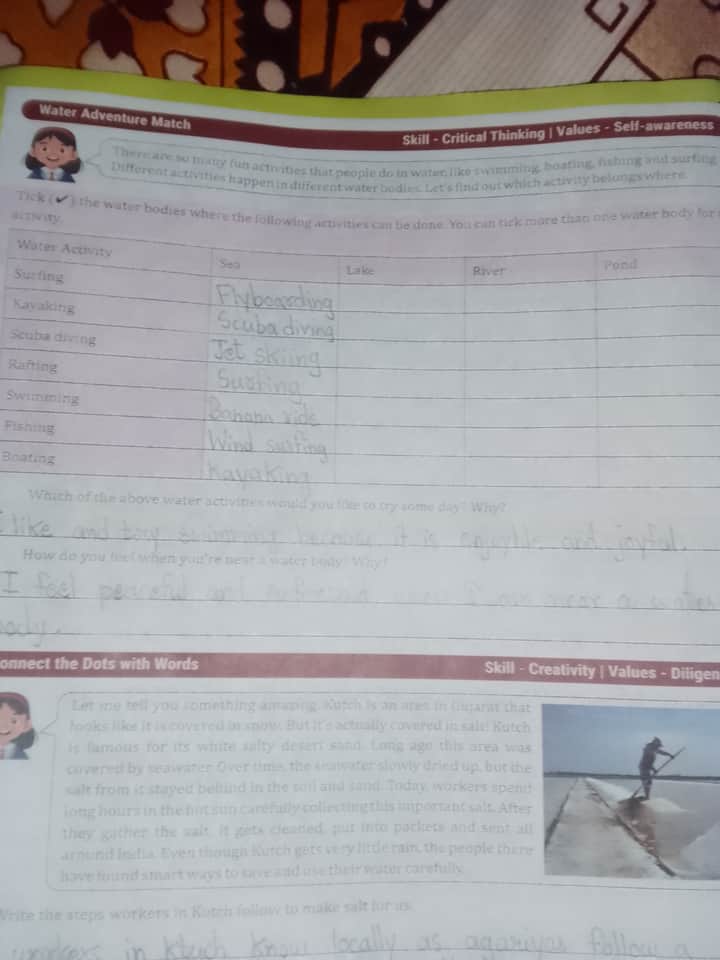 Water Adventure Match
Skill - Critical Thinking | Values - Self-awareness
There are so many fun activities that people do in water, like swimming, boating, fishing and surfing
Different activities happen in different water bodies. Let's find out which activity belongs where.
Tick (✔) the water bodies where the following activities can be done. You can tick more than one water body for
activity.
Water Activity Sea Lake River Pond
Surfing Flyboarding
Kayaking Scuba diving
Scuba diving Jet skiing
Rafting Surfing
Swimming Banana ride
Fishing Wind surfing
Boating Kayaking
Which of the above water activities would you like to try some day? Why?
like and swimming because it is and joyful.
How do you feel when you're near a water body? Why?
I feel peaceful and I am near a water
body.
onnect the Dots with Words
Skill - Creativity | Values - Diligen
Let me tell you something amazing. Kutch is an area in Gujarat that
looks like it is covered in snow. But it's actually covered in salt! Kutch
is famous for its white salty desert sand. Long ago this area was
covered by seawater. Over time, the seawater slowly dried up, but the
salt from it stayed behind in the soil and sand. Today, workers spend
long hours in the hot sun carefully collecting this important salt. After
they gather the salt, it gets cleaned, put into packets and sent all
around India. Even though Kutch gets very little rain, the people there
have found smart ways to save and use their water carefully.
Write the steps workers in Kutch follow to make salt for us.
workers in know locally as agariyas follow a